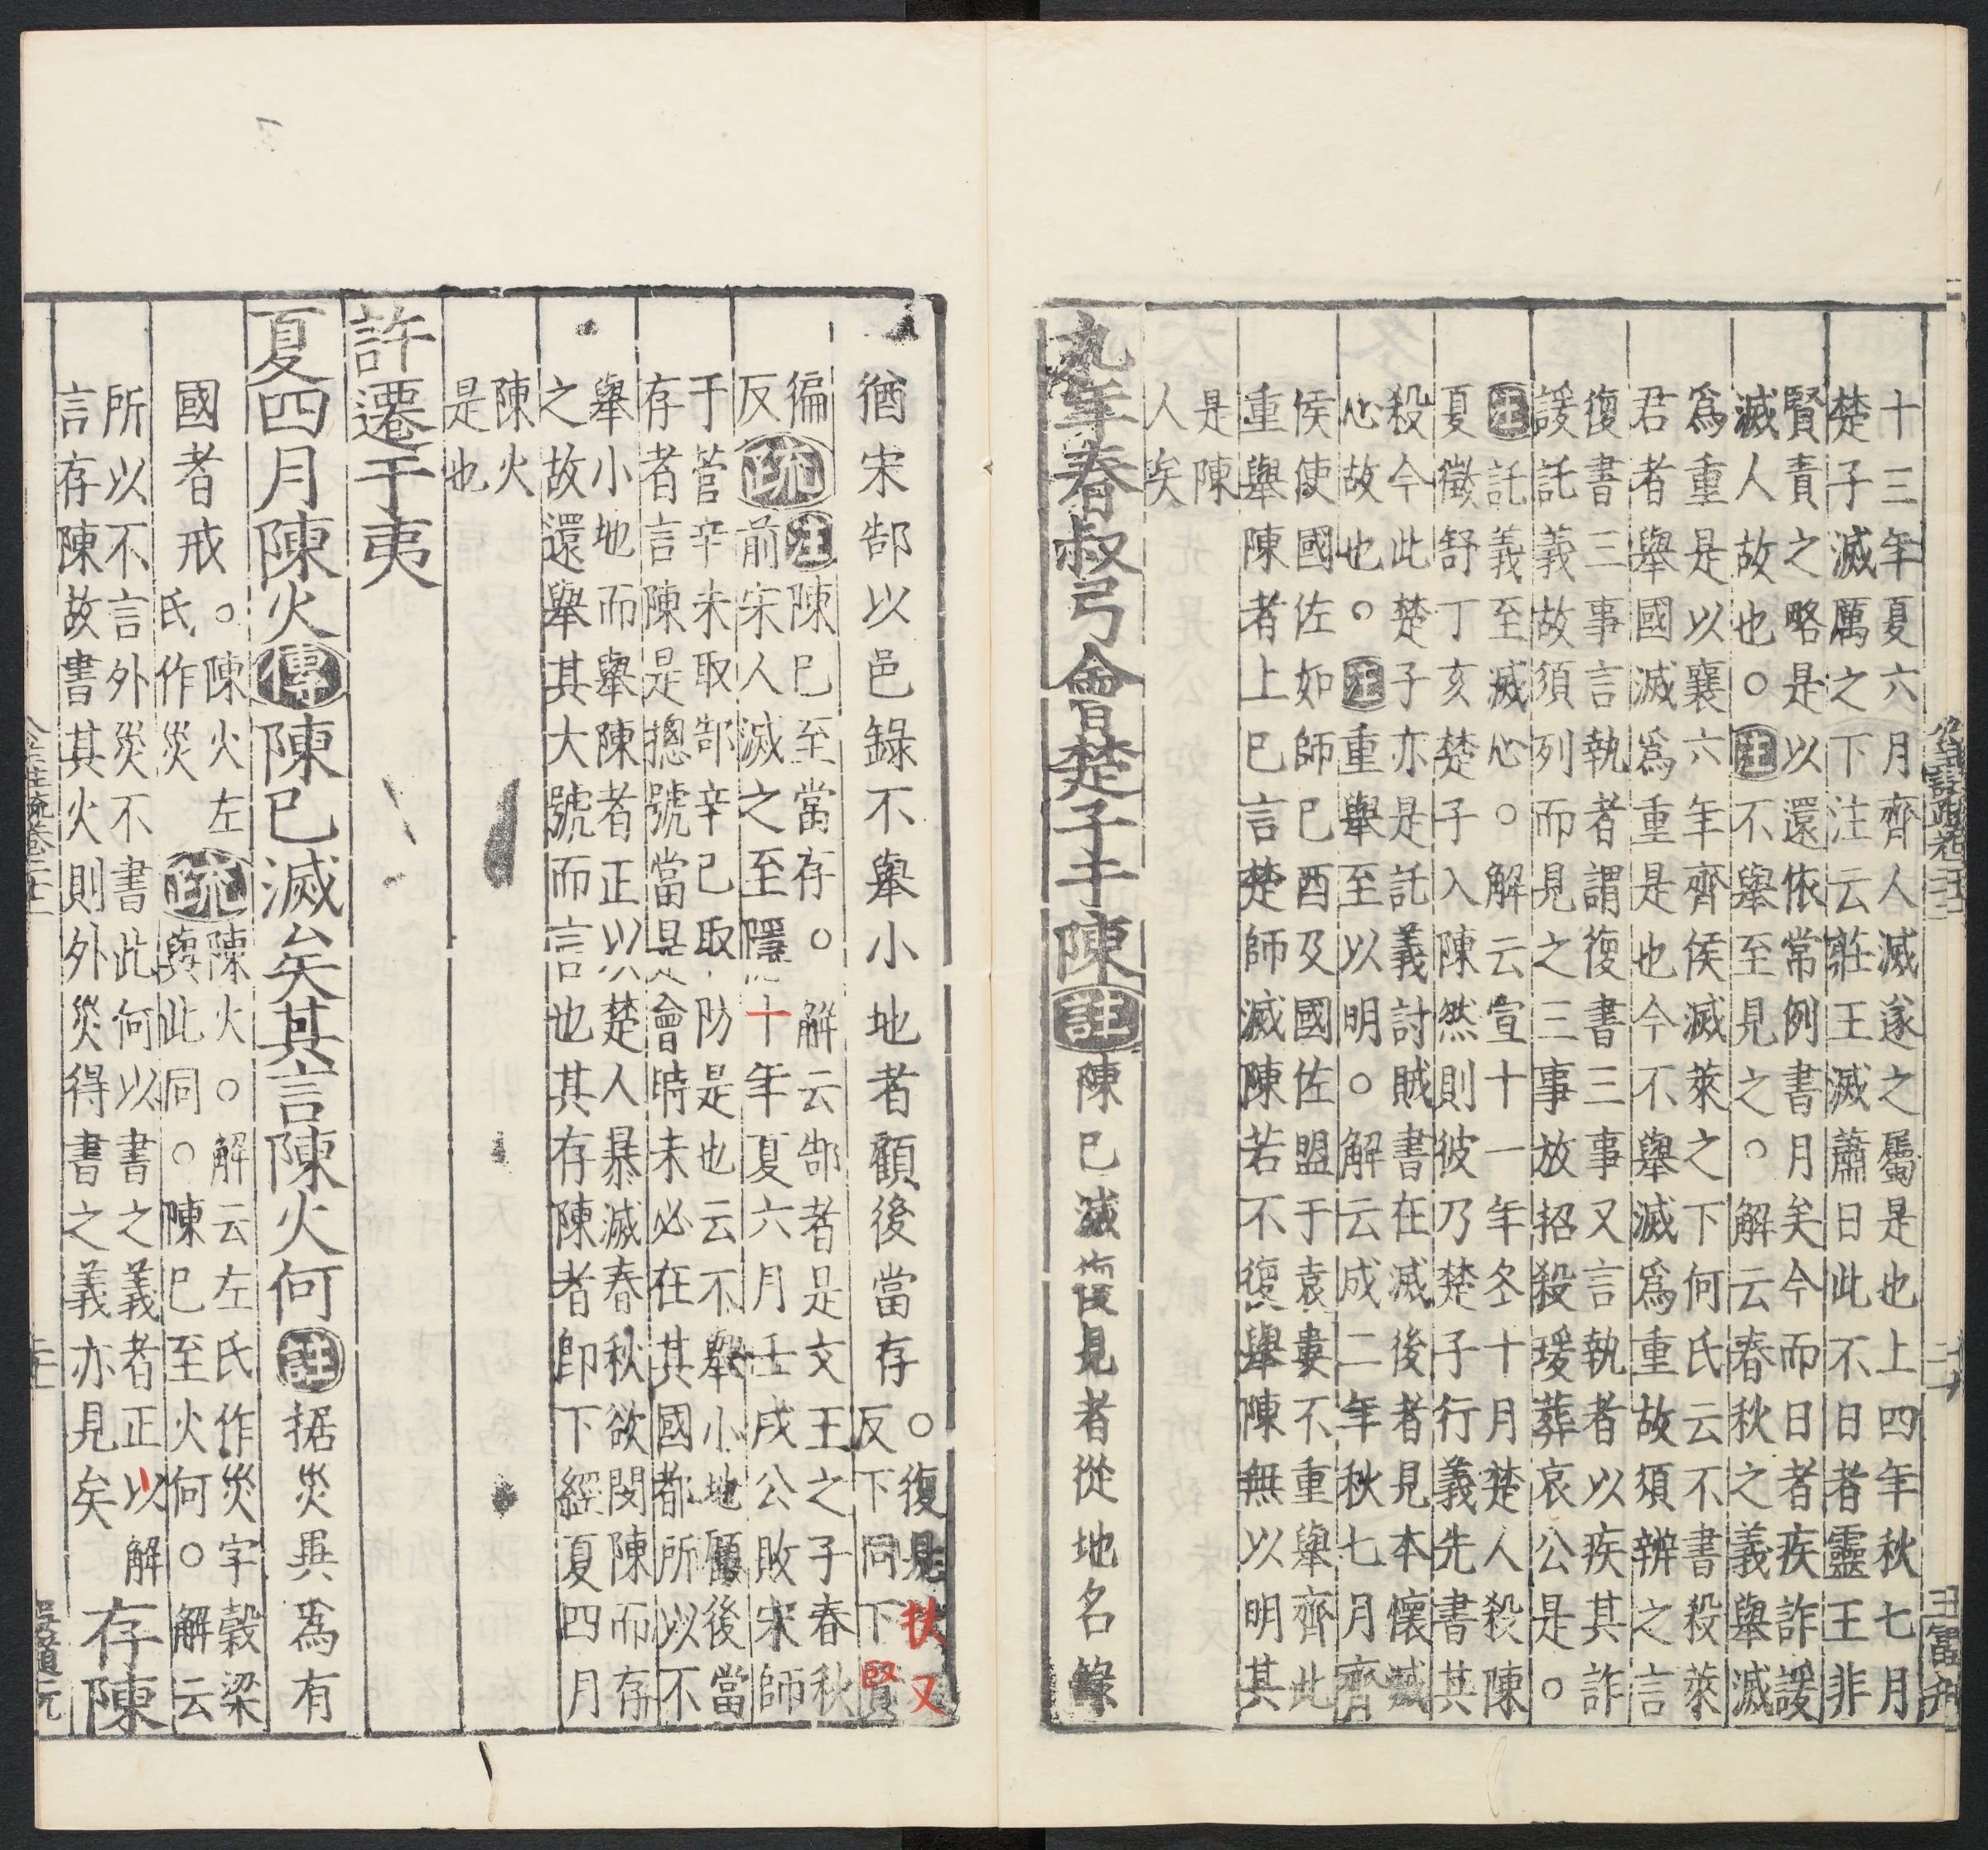 十三年夏六月齊人滅遂之屬是也上四年秋七月
楚子滅厲之下注云莊王滅蕭日此不日者靈王非
賢責之略是以還依常例書月矣今而日者疾詐諼
滅人故也○注不舉至見之○解云春秋之義舉滅
爲重是以襄六年齊侯滅萊之下何氏云不書殺萊
君者舉國滅爲重是也今不舉滅爲重故須辨之言
復書三事言執者謂復書三事又言執者以疾其詐
諼託義故須列而見之三事放招殺瑗葬哀公是○
注託義至滅心○解云宣十一年冬十月楚人殺陳
夏徵舒丁亥楚子入陳然則彼乃楚子行義先書其
殺今此楚子亦是託義討賊書在滅後者見本懷滅
心故也○注重舉至以明○解云成二年秋七月齊
侯使國佐如師已酉及國佐盟于袁婁不重舉齊此
重舉陳者上已言楚師滅陳若不復舉陳無以明其
是陳
人矣
九年春叔弓會楚子于陳註陳已滅復見者從地名錄
猶宋郜以邑錄不舉小地者顧後當存○復見扶又
反下同下賢
徧
反疏注陳已至當存○解云郜者是文王之子春秋
前宋人滅之至隱十年夏六月壬戌公敗宋師
于菅辛未取郜辛已取防是也云不舉小地顧後當
存者言陳是摠號當是會時未必在其國都所以不
舉小地而舉陳者正以楚人暴滅春秋欲閔陳而存
之故還舉其大號而言也其存陳者卽下經夏四月
陳火
是也
許遷于夷
夏四月陳火傳陳已滅矣其言陳火何註据災異爲有
國者戒○陳火左
氏作災疏陳火○解云左氏作災字穀梁
與此同○陳已至火何○解云
所以不言外災不書此何以書之義者正以解
言存陳故書其火則外災得書之義亦見矣存陳